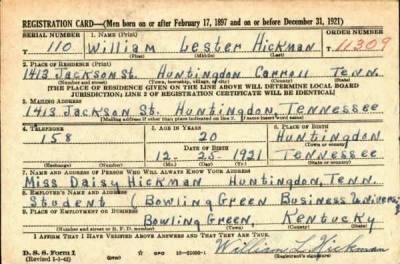 REGISTRATION CARD—(Men born on or after February 17, 1897 and on or before December 31, 1921)
SERIAL NUMBER 1. NAME (Print) ORDER NUMBER
110 William Lester Hickman 11309
(First) (Middle) (Last)
2. PLACE OF RESIDENCE (Print)
1413 Jackson St. Huntingdon Carroll Tenn.
(Number and street) (Town, township, village, or city) (County) (State)
[THE PLACE OF RESIDENCE GIVEN ON THE LINE ABOVE WILL DETERMINE LOCAL BOARD
JURISDICTION; LINE 2 OF REGISTRATION CERTIFICATE WILL BE IDENTICAL]
3. MAILING ADDRESS
1413 Jackson St. Huntingdon, Tennessee
[Mailing address if other than place indicated on line 2. If same insert word same]
4. TELEPHONE 5. AGE IN YEARS 6. PLACE OF BIRTH
158 20 Huntingdon
DATE OF BIRTH (Town or county)
12- 25- 1921 Tennessee
(Exchange) (Number) (Mo.) (Day) (Yr.) (State or country)
7. NAME AND ADDRESS OF PERSON WHO WILL ALWAYS KNOW YOUR ADDRESS
Miss Daisy Hickman Huntingdon, Tenn.
8. EMPLOYER'S NAME AND ADDRESS
Student (Bowling Green Business
9. PLACE OF EMPLOYMENT OR BUSINESS
Bowling Green, Kentucky
(Number and street or R. F. D. number) (Town) (County) (State)
I AFFIRM THAT I HAVE VERIFIED ABOVE ANSWERS AND THAT THEY ARE TRUE.
D. S. S. Form 1 GPO
William L. Hickman